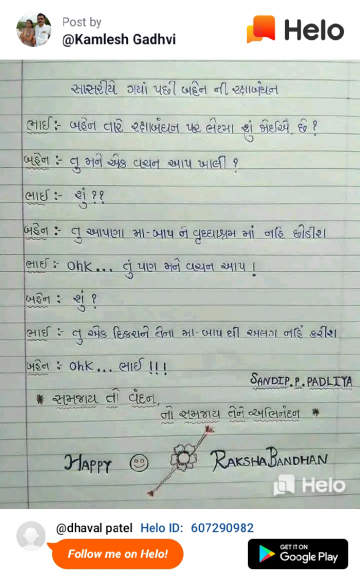 Post by
@Kamlesh Gadhvi
Helo
સાસરીયે ગયાં પછી બહેન ની રક્ષાબંધન
ભાઈ :- બહેન તારે રક્ષાબંધન પર ભેટમા શું જોઈએ છે ?
બહેન :- તુ મને એક વચન આપ ખાલી ?
ભાઈ :- શું ??
બહેન :- તુ આપણા મા-બાપ ને વૃધ્ધાશ્રમ માં નહિ છોડીશ
ભાઈ :- Ohk... તું પણ મને વચન આપ !
બહેન : શું ?
ભાઈ :- તુ એક દિકરાને તેના મા-બાપ થી અલગ નહિં કરીશ
બહેન : Ohk... ભાઈ !!!
SANDIP.P.PADLIYA
* સમજાય તો વંદન,
નો સમજાય તેને અભિનંદન *
HAPPY RAKSHABANDHAN
Helo
@dhaval patel Helo ID: 607290982
Follow me on Helo!
GET IT ON
Google Play